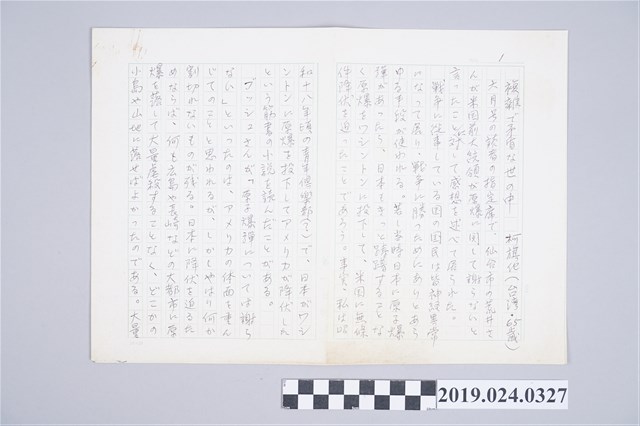 1
複雑で矛盾な世の中　柯旗化(台湾・65歳)
六月号の読者の指定席で、仙台市の荒井さ
んが米国前大統領が原爆に関して謝らないと
言ったことに対して感想を述べて居られた。
戦争に従事している国の国民は皆神経異常
になって居り、戦争に勝つためにはありとあら
ゆる手段が使われる。若し当時日本に原子爆
弾があったら、日本もきっと躊躇することな
く原爆をワシントンに投下して、米国に無條
件降伏を迫ったことであろう。事実、私は昭
和十八年頃の青年倶樂部(?)で、日本がワシ
ントンに原爆を投下してアメリカが降伏した
という筋書の小説を読んだことがある。
ブッシュさんが「原子爆弾については謝ら
ない」といったのは、アメリカの体面を重ん
じてのことと思われるが、しかしやはり何か
割切れないものが残る。日本に降伏を迫るた
めならば、何も広島や長崎などの大都市に原
爆を落して大量虐殺することなく、どこかの
小島や山地に落せばよかったのである。大量
2019.024.0327